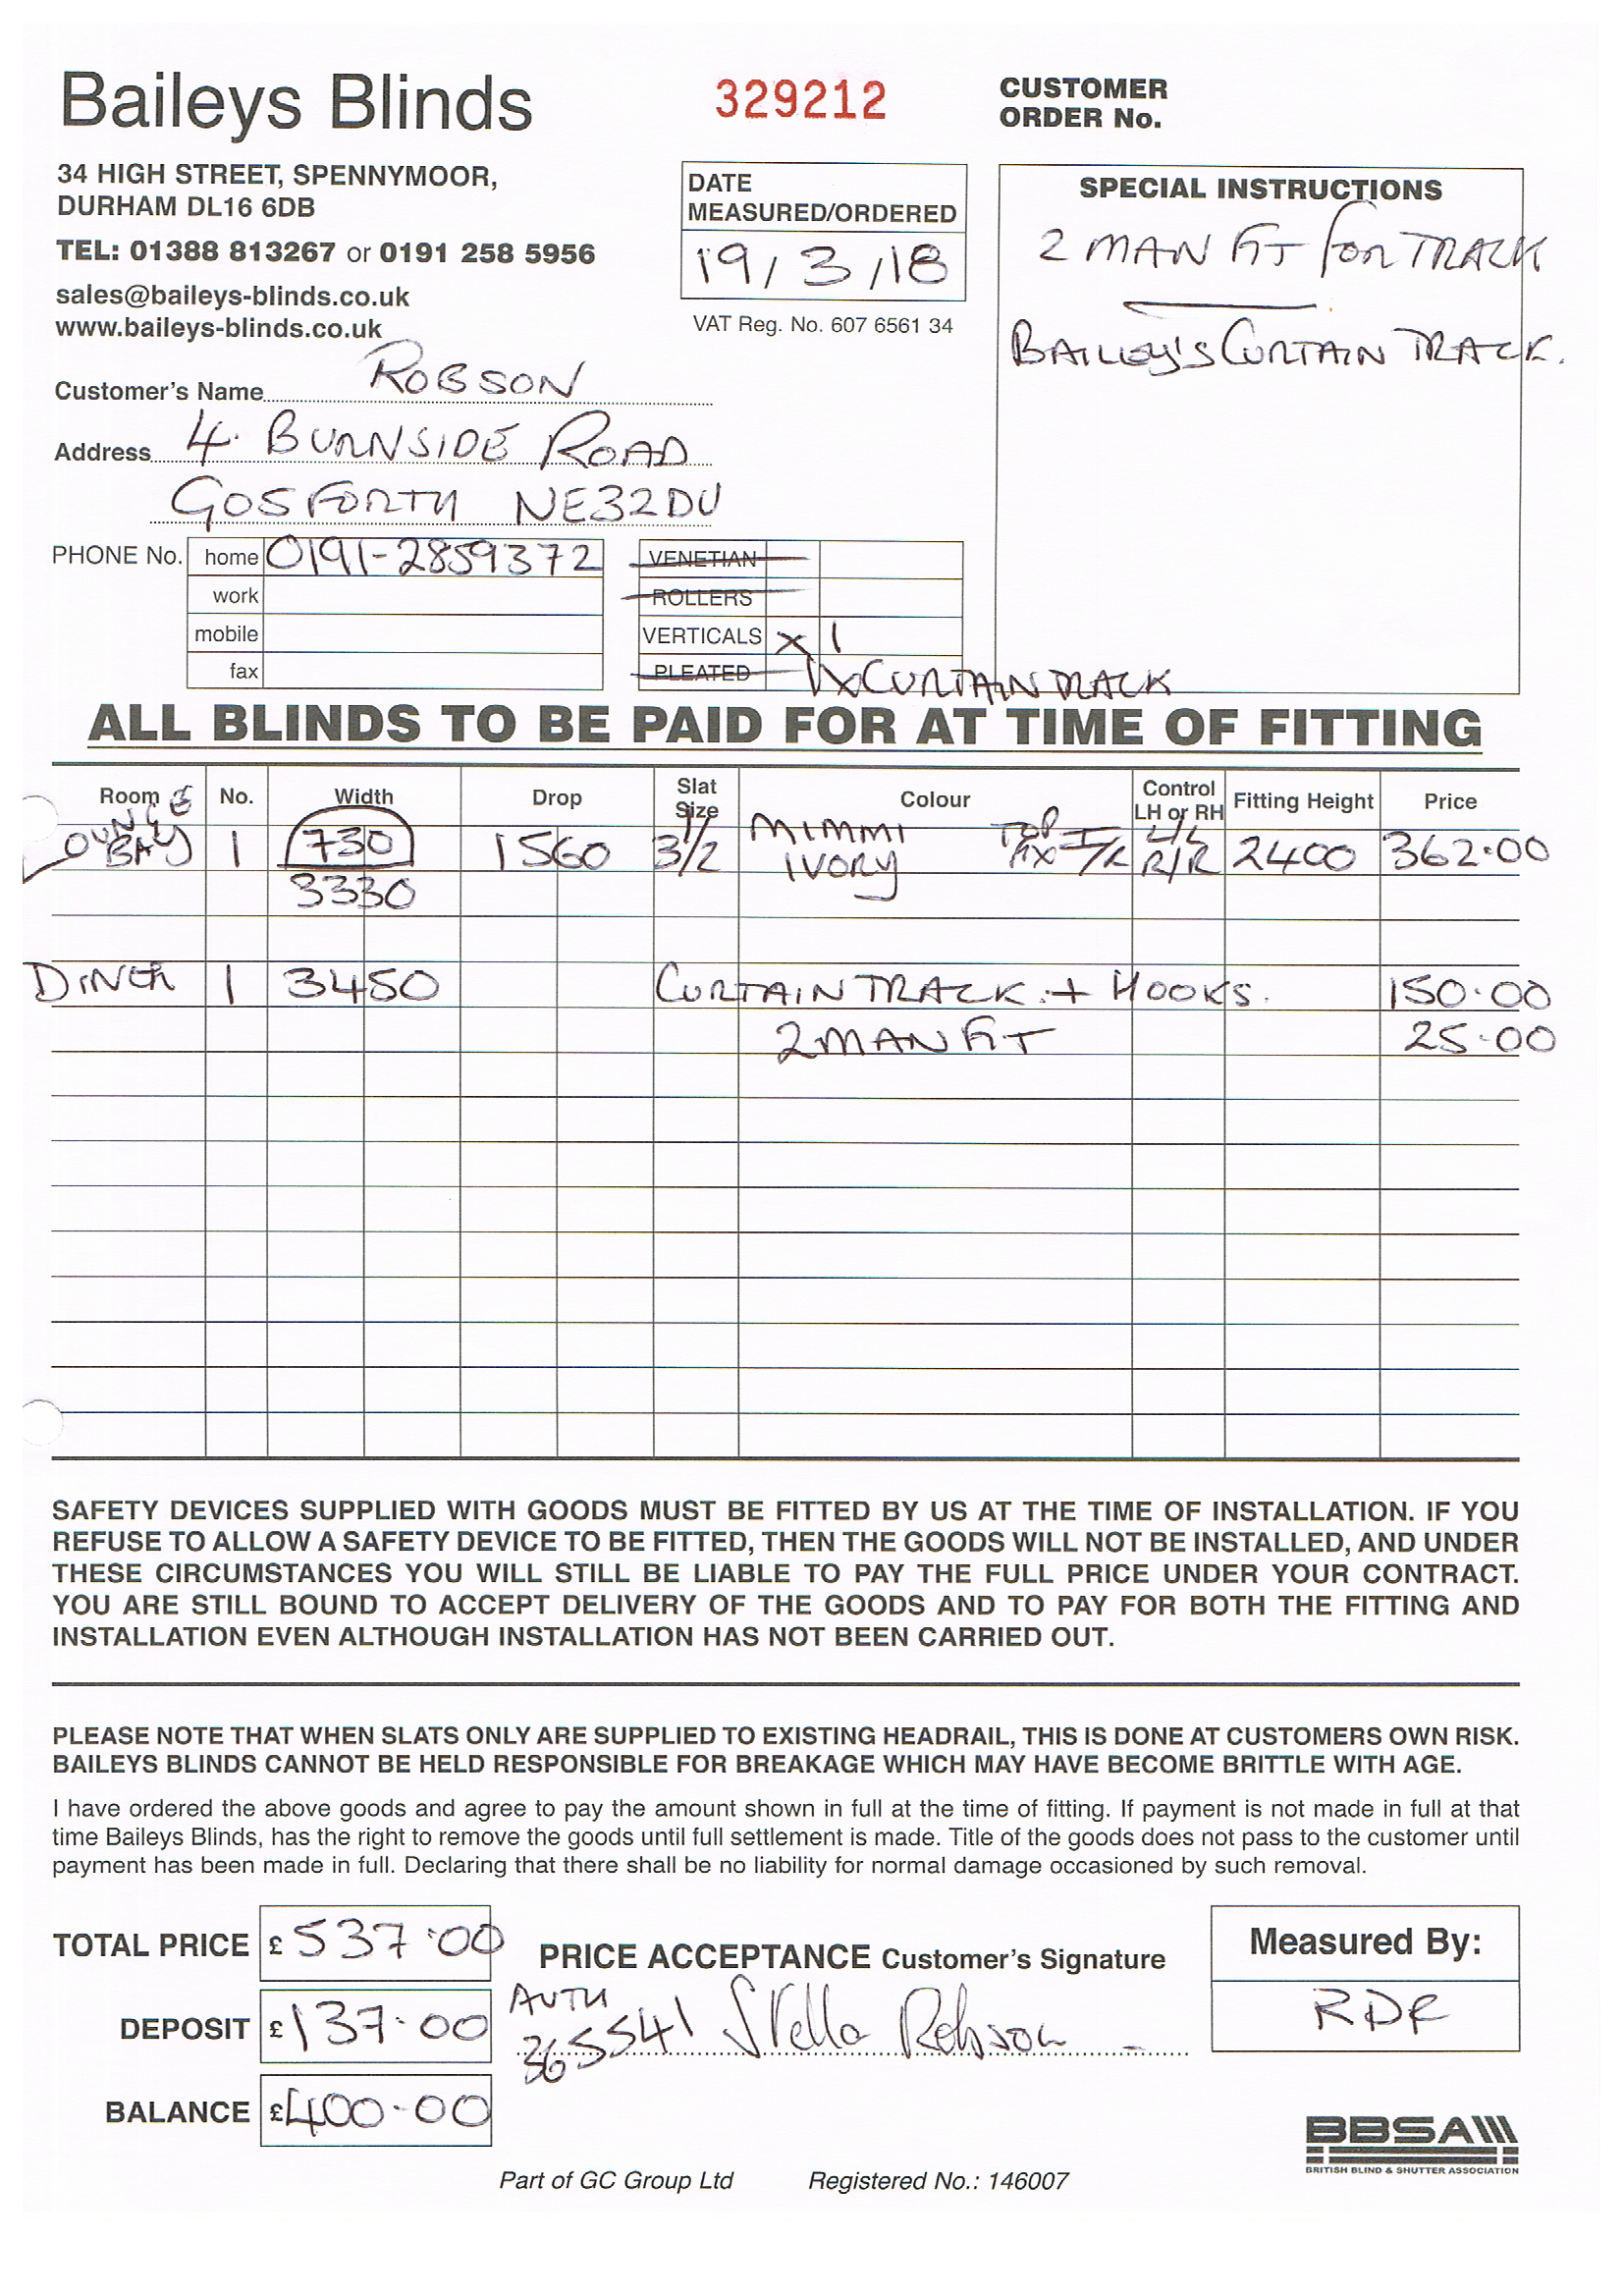 Baileys Blinds
329212
CUSTOMER
ORDER No.
34 HIGH STREET, SPENNYMOOR,
DURHAM DL16 6DB
TEL: 01388 813267 or 0191 258 5956
sales@baileys-blinds.co.uk
www.baileys-blinds.co.uk
DATE
MEASURED/ORDERED
19/3/18
VAT Reg. No. 607 6561 34
SPECIAL INSTRUCTIONS
2 MAN FIT FOR TRACK
BAILEY'S CURTAIN TRACK.
Customer's Name ROBSON
Address 4. BURNSIDE ROAD
GOSFORTH NE32DU
PHONE No. home 0191-2859372
work
mobile
fax
VENETIAN
ROLLERS
VERTICALS X 1
PLEATED 1X CURTAIN TRACK
ALL BLINDS TO BE PAID FOR AT TIME OF FITTING
Room No. Width Drop Slat Size Colour Control LH or RH Fitting Height Price
LOUNGE BAY 1 730 1560 3 1/2 MIMMI IVORY TOP FIX L/L R/R 2400 362.00
3330
DINER 1 3450 CURTAIN TRACK + HOOKS. 150.00
2 MAN FIT 25.00
SAFETY DEVICES SUPPLIED WITH GOODS MUST BE FITTED BY US AT THE TIME OF INSTALLATION. IF YOU
REFUSE TO ALLOW A SAFETY DEVICE TO BE FITTED, THEN THE GOODS WILL NOT BE INSTALLED, AND UNDER
THESE CIRCUMSTANCES YOU WILL STILL BE LIABLE TO PAY THE FULL PRICE UNDER YOUR CONTRACT.
YOU ARE STILL BOUND TO ACCEPT DELIVERY OF THE GOODS AND TO PAY FOR BOTH THE FITTING AND
INSTALLATION EVEN ALTHOUGH INSTALLATION HAS NOT BEEN CARRIED OUT.
PLEASE NOTE THAT WHEN SLATS ONLY ARE SUPPLIED TO EXISTING HEADRAIL, THIS IS DONE AT CUSTOMERS OWN RISK.
BAILEYS BLINDS CANNOT BE HELD RESPONSIBLE FOR BREAKAGE WHICH MAY HAVE BECOME BRITTLE WITH AGE.
I have ordered the above goods and agree to pay the amount shown in full at the time of fitting. If payment is not made in full at that
time Baileys Blinds, has the right to remove the goods until full settlement is made. Title of the goods does not pass to the customer until
payment has been made in full. Declaring that there shall be no liability for normal damage occasioned by such removal.
TOTAL PRICE £ 537.00
PRICE ACCEPTANCE Customer's Signature
Measured By:
RDR
DEPOSIT £ 137.00
AUTH
365541 Stella Robson
BALANCE £ 400.00
BBSA
BRITISH BLIND & SHUTTER ASSOCIATION
Part of GC Group Ltd Registered No.: 146007